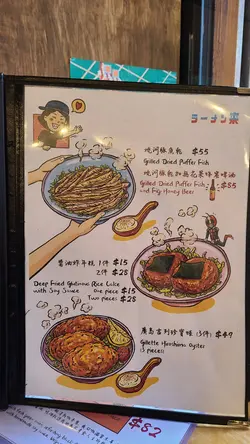 ラーメン楽
燒河豚魚乾 $55
Grilled Dried Puffer Fish
燒河豚魚乾加無花果蜂蜜啤酒
Grilled Dried Puffer Fish $85
and Fig Honey Beer
醬油炸年糕 1件 $15
2件 $28
Deep Fried Glutinous Rice Cake
with Soy Sauce One piece $15
Two pieces $28
廣島吉列珍寶蠔 (3件) $49
Gillette Hiroshima Oyster
(3 pieces)
$82